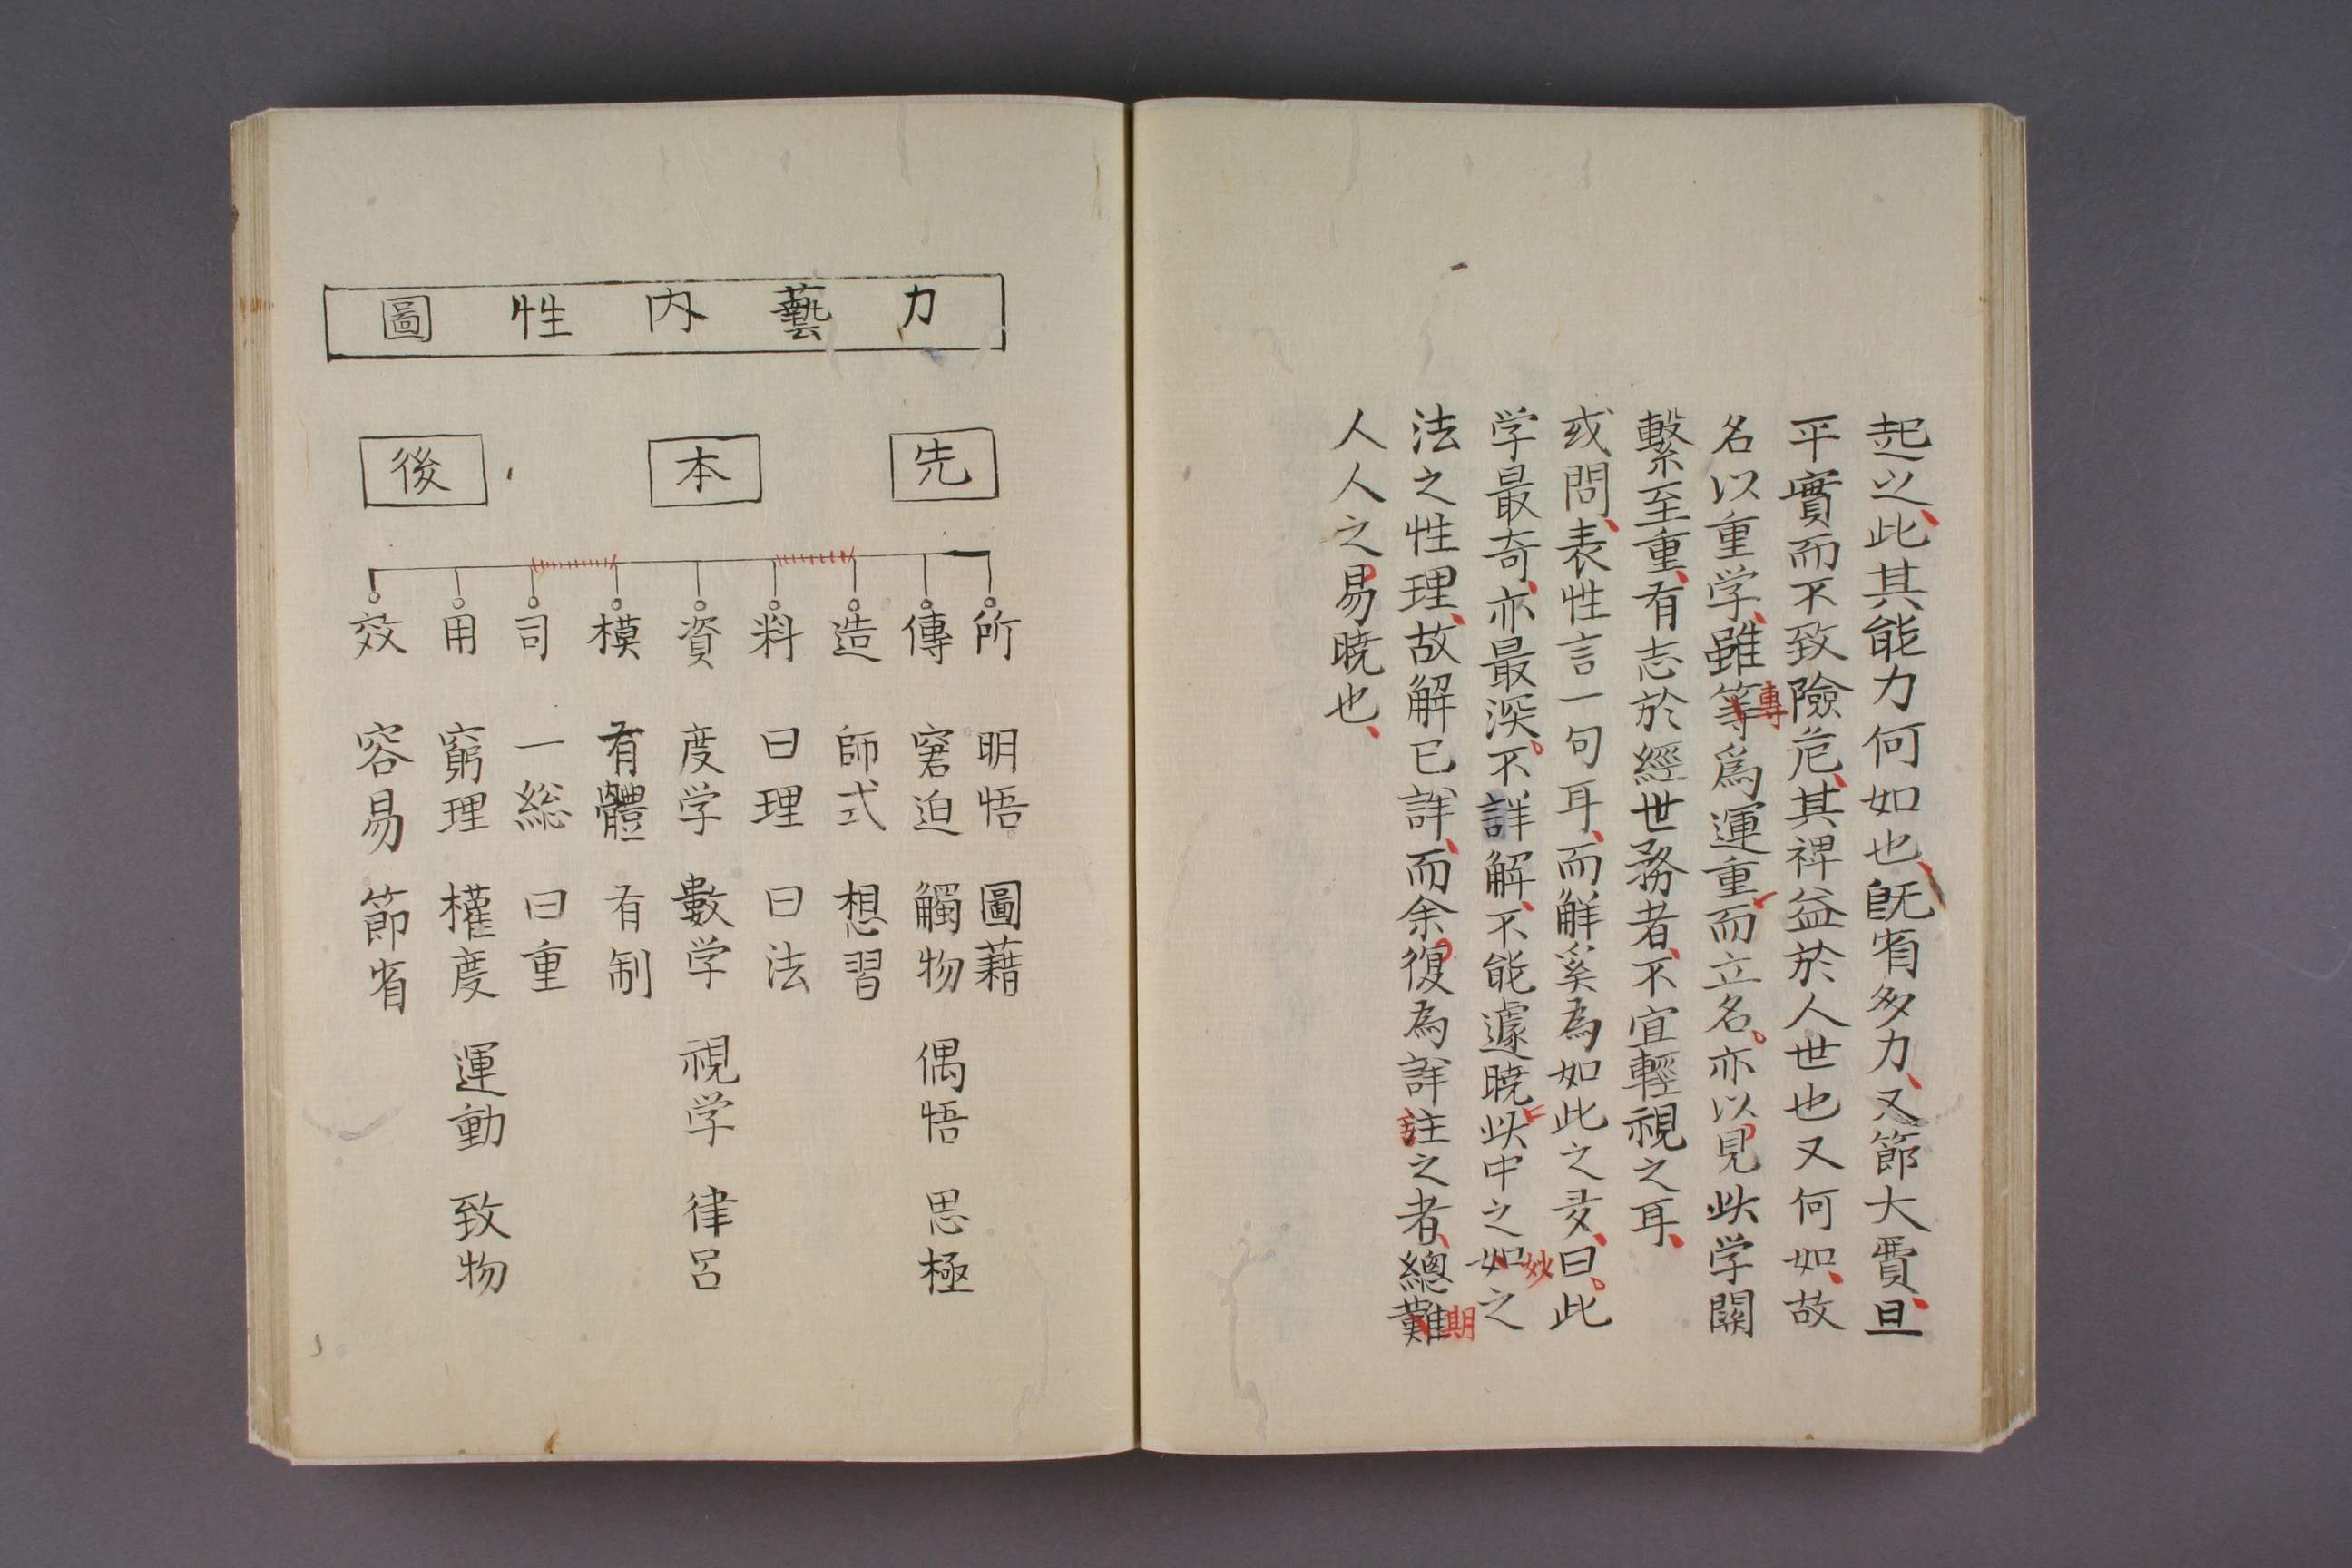 起之、此其能力何如也、既省多力、又節大費、且
平實而不致險危、其裨益於人世也又何如、故
名以重学、雖等專爲運重而立名。亦以見此学關
繫至重、有志於經世務者、不宜輕視之耳、
或問、表性言一句耳、而解奚為如此之多、曰。此
学最奇、亦最深。不詳解、不能遽曉此中之如妙之
法之性理、故解已詳、而余復為詳註之者、總難期
人人之易曉也、
力藝内性圖
先
本
後
所 明悟 圖藉
傳 窘迫 觸物 偶悟 思極
造 師式 想習
料 曰理 曰法
資 度学 數学 視学 律呂
模 有體 有制
司 一総 曰重
用 窮理 權度 運動 致物
效 容易 節省